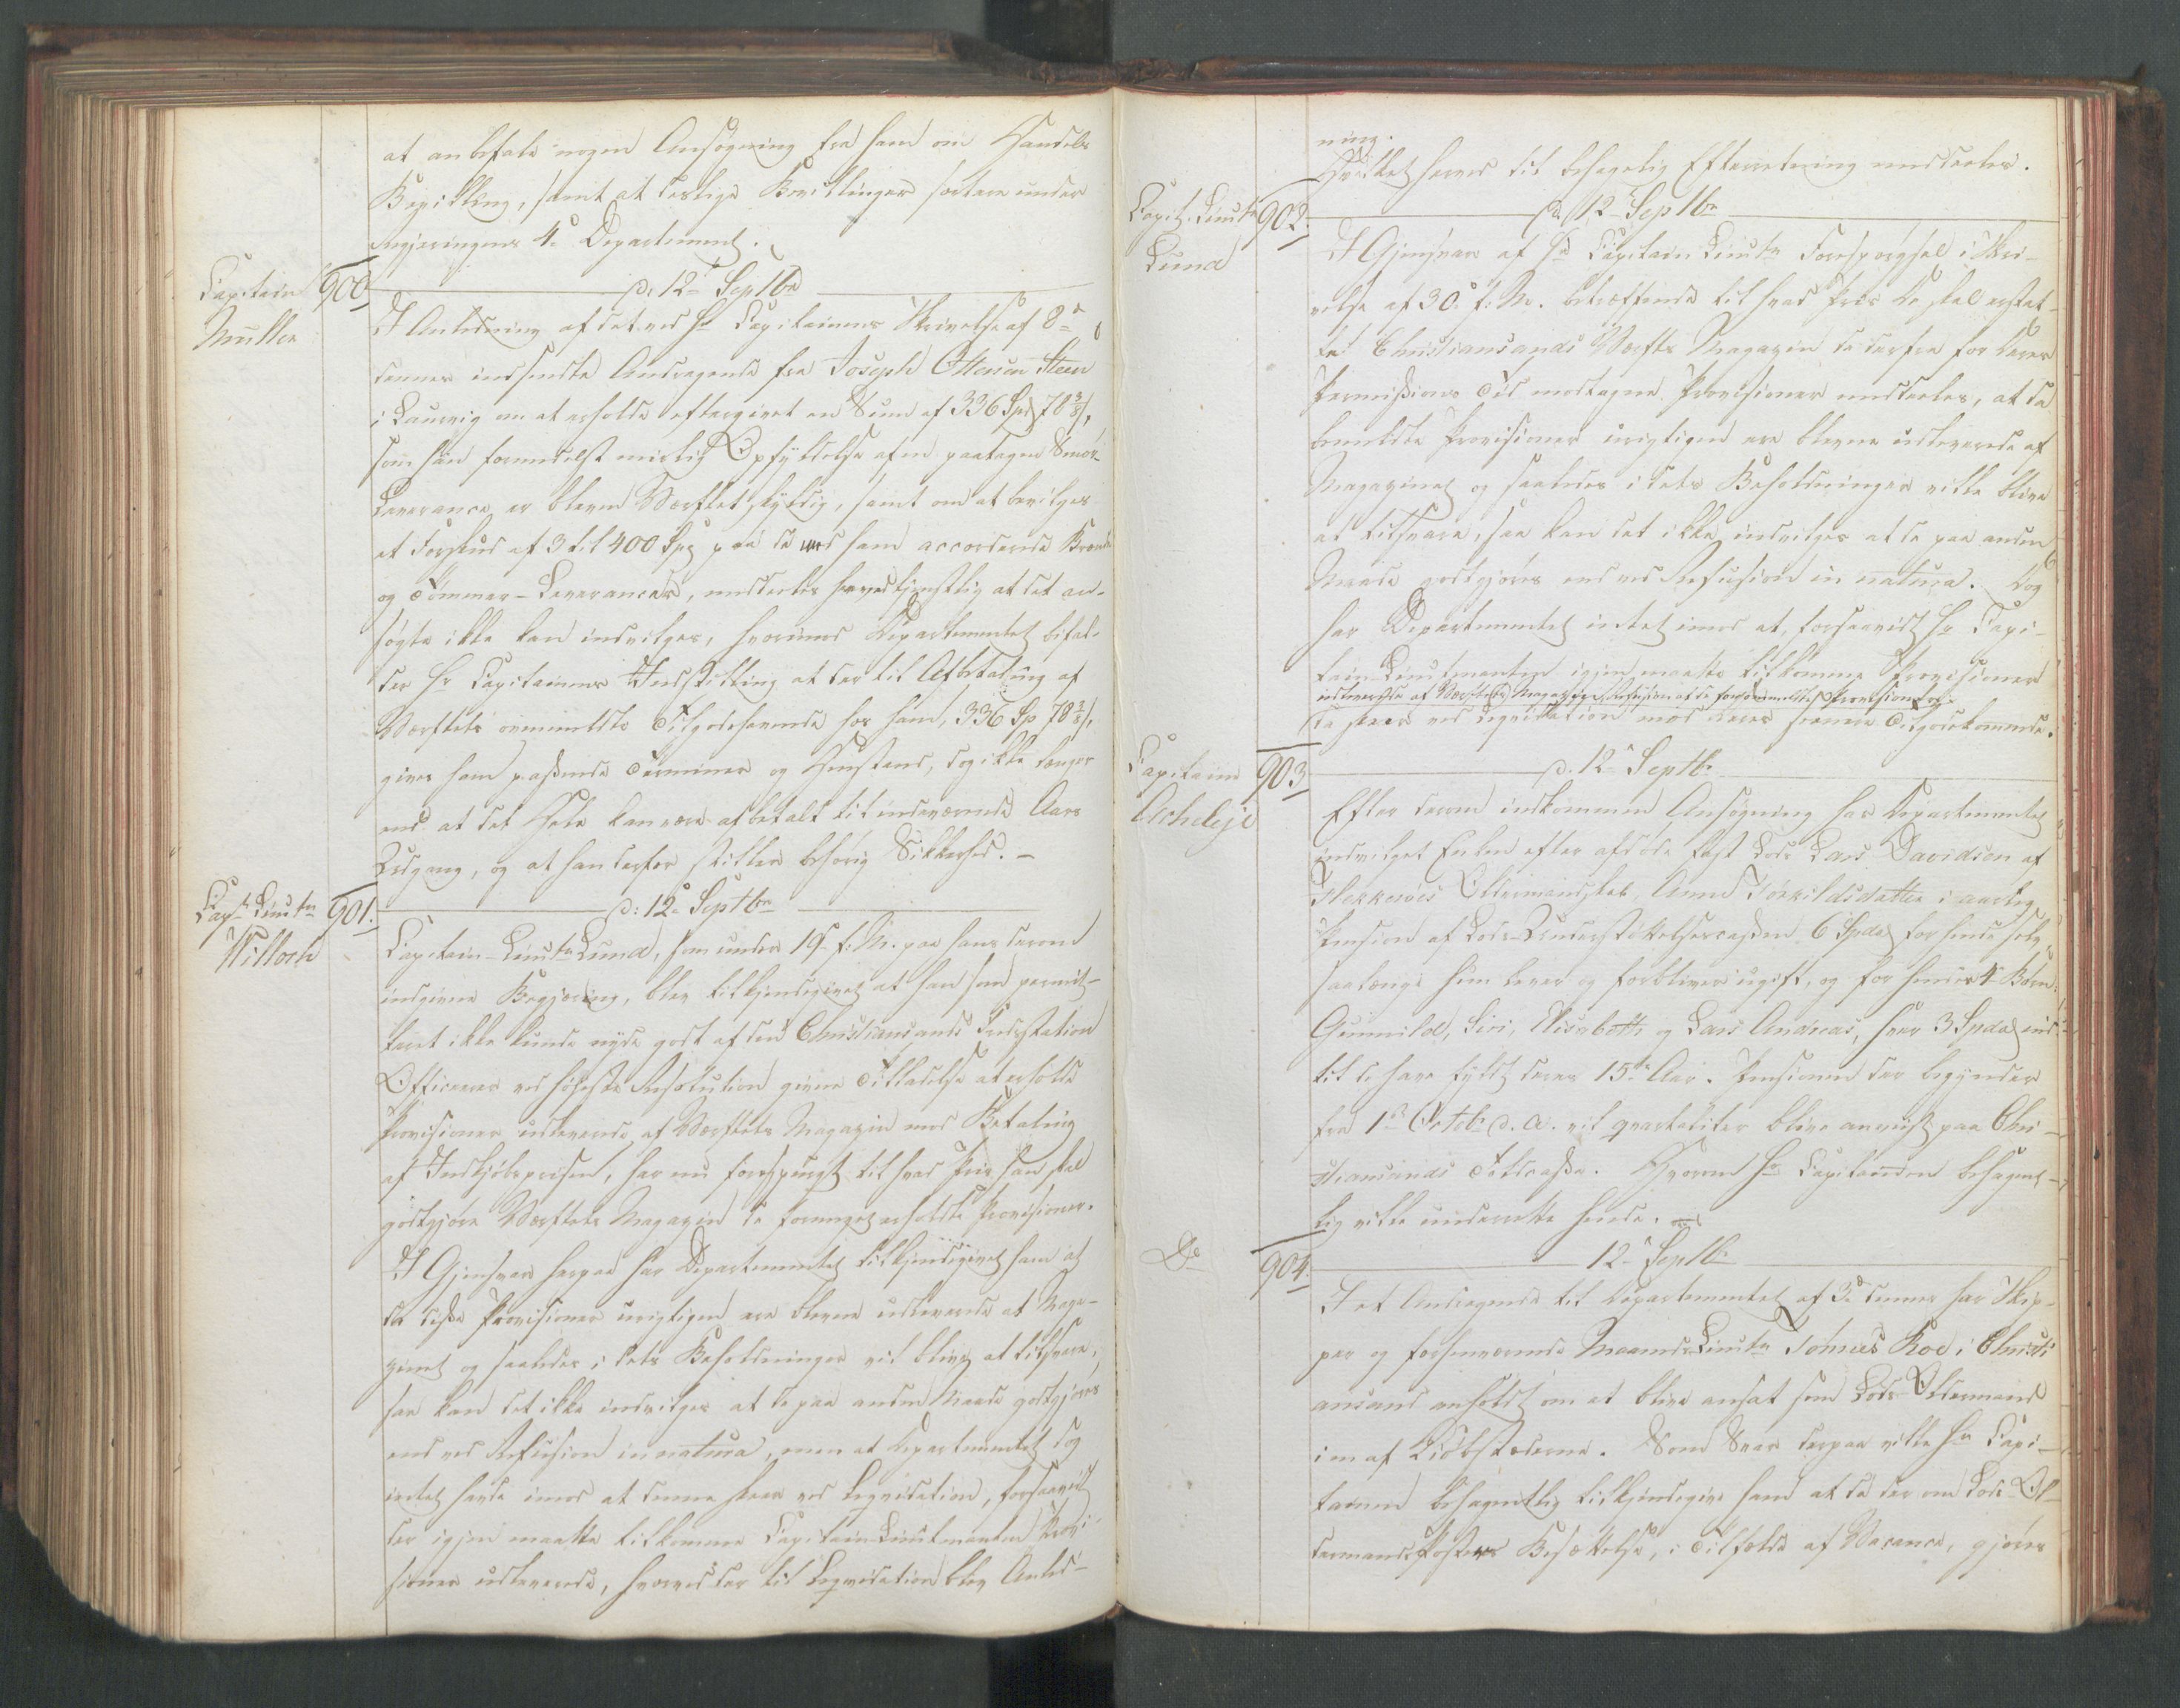 at anbefale nogen Ansøgning fra ham om Handels
Bevilling, samt at deslige Bevillinger sortere under
Regjeringens 4de Departement.
Capitain
Müller
900
d: 12te Septbr
I Anledning af det ved Hr Capitainens Skrivelse af 8de
dennes indsendte Andragende fra Joseph Ottesen Steen
i Laurvig om at erholde eftergivet en Sum af 336 Spd 78 3/8 s,
som han formedelst mislig Opfyldelse af en paatagen Smør-
Leverance er bleven Værftet skyldig, samt om at bevilges
et Forskud af 3 til 400 Spd paa de med ham accorderede Brænde
og Tømmer-Leverancer, meddeles herved tjenstlig at det an-
søgte ikke kan indvilges, hvorimod Departementet bifal-
der Hr Capitainens Indstilling at der til Afbetaling af
Værftets ovenmeldte Tilgodehavende hos ham, 336 Sp 78 3/8 s,
gives ham passende Terminer og Henstand, dog ikke længer
end at det Hele kan være afbetalt til indeværende Aars
Udgang, og at han derfor stiller behørig Sikkerhed. -
Capt Lieutn
Willoch
901.
d: 12te Septbr
Capitain-Lieutn Lund, som under 19de f: M. paa hans derom
indgivne Begjæring, blev tilkjendegivet at han som permit-
teret ikke kunde nyde godt af den Christiansands Indrs Station
Officerer ved høieste Resolution givne Tilladelse at erholde
Provisioner udleverede af Værftets Magazin mod Betaling
af Indkjøbsprisen, har nu forespurgt til hvad Priis han skal
godtgjøre Værftets Magazin de forrige erholdte Provisioner.
I Gjensvar herpaa har Departementet tilkjendegivet ham at
da disse Provisioner urigtigen ere blevne udleverede af Maga-
zinet og saaledes i dets Beholdninger vil blive at tilsvare,
saa kan det ikke indvilges at de paa anden Maade godtgjøres
end ved Refusion in natura, men at Departementet dog
intet havde imod at denne skeer ved Liqvidation, forsaavidt
der igjen maatte tilkomme Capitain-Lieutenanten Provi-
sioner udleverede, hvorved der til Liqvidation blev Anled-
ning.
Hvilket herved til behagelig Efterretning meddeles.
Capit. Lieutn
Lund
902.
d. 12te Septbr
I Gjensvar af Hr Capitain Lieutn Forespørgsel i Skri-
velse af 30te f: M. betræffende til hvad Priis De skal erstat-
te Christiansands Værfts Magazin de derfra for Deres
Permissions Tid modtagne Provisioner meddeles, at da
bemeldte Provisioner urigtigen ere blevne udleverede af
Magazinet og saaledes i dets Beholdninger ville blive
at tilsvare, saa kan det ikke indvilges at de paa anden
Maade godtgjøres end ved Refusion in natura. Dog
har Departementet intet imod at, forsaavidt Hr Capi-
tain-Lieutenanten igjen maatte tilkomme Provisioner
udleverede af Værftets Magazin, Refusion af de forommeldte Provisioner
da skeer ved Liqvidation mod Deres senere Tilgodekommende.
Capitain
Acheleje
903
d. 12te Septbr
Efter derom indkommen Ansøgning har Departementet
indvilget Enken efter afdøde fast Lods Lars Davidsen af
Flekkerøes Oldermandskab, Anne Torkildsdatter i aarlig
Pension af Lods-Understøttelsescassen 6 Spdlr for hende selv,
saalænge hun lever og forbliver ugift, og for hendes 4 Børn:
Gunnild, Siri, Elisabeth og Lars Andreas, hver 3 Spdlr ind-
til de have fyldt deres 15de Aar. Pensionen der begynder
fra 1ste Octobr d. a. vil qvartaliter blive anviist paa Chri-
stiansands Toldcasse. Hvorom Hr Capitainen behagent-
lig ville underrette hende.
Do
904.
12te Septbr
I et Andragende til Departementet af 3de dennes har Skip-
per og forhenværende Maaneds Lieutn Tønnes Roe i Christi
ansand anholdt om at blive ansat som Lods-Oldermand
i en af Kiøbstæderne. Som Svar derpaa ville Hr Capi-
tainen behagentlig tilkjendegive ham at da der om Lods-Ol-
dermands Posters Besættelse, i Tilfælde af Vacance, gjøres